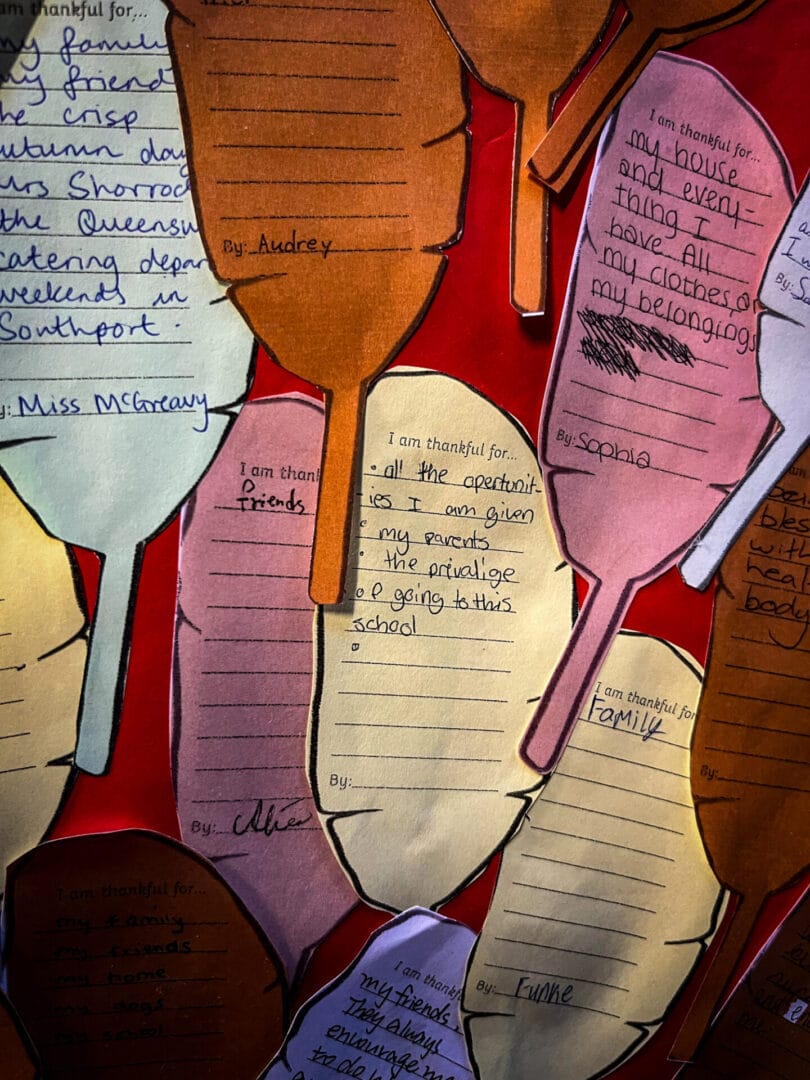 am thankful for...
my family
my friend
the crisp
autumn day
Mrs Shorroc
the Queensw
catering depar
weekends in
Southport.
By: Miss McGreavy
By: Audrey
I am thankful for...
my house
and every-
thing I
have All
my clothes,
my belongings
By: Sophia
I am than
Friends
By:
I am thankful for...
• all the apertunit-
ies I am given
• my parents
• the privalige
of going to this
school
By:
I am thankful for
Family
By: Funke
By: S
bles
with
heal
body
By:
I am thankful for...
my family
my friends
my home
my dogs
my school
I am thankf
my friends,
They always
encourage me
to do